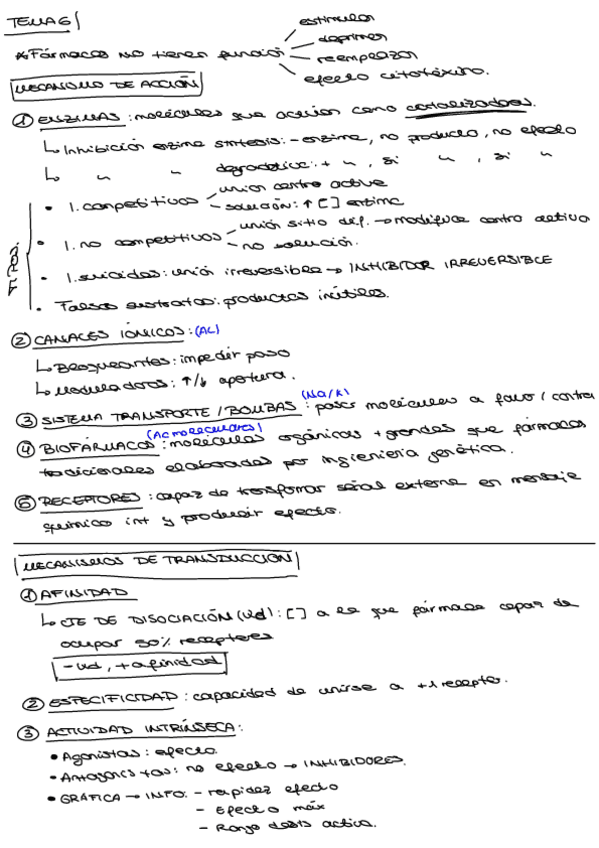 TEMA 6
estimular
deprimir
*Fármacos NO tienen función
reemplazar
efecto citotóxico.
MECANISMO DE ACCIÓN
① ENZIMAS: moléculas que actúan como catalizadores.
↳ Inhibición enzima síntesis: - enzima, no producto, no efecto
↳ " " degradativa: + " , si " , si "
unión centro activo
• I. competitivos
solución: ↑ [ ] enzima
TIPOS.
• I. no competitivos
unión sitio dif. → modifica centro activo
no solución.
• I. suicidas: unión irreversible → INHIBIDOR IRREVERSIBLE
• Falsos sustratos: productos inútiles.
② CANALES IÓNICOS: (AC)
↳ Bloqueantes: impedir paso
↳ Moduladores: ↑/↓ apertura.
(Na/K)
③ SISTEMA TRANSPORTE / BOMBAS: pasar moléculas a favor / contra
(Ac moleculares)
④ BIOFÁRMACOS: moléculas orgánicas + grandes que fármacos
tradicionales elaborados por ingeniería genética.
⑤ RECEPTORES: capaz de transformar señal externa en mensaje
químico int y producir efecto.
MECANISMOS DE TRANSDUCCIÓN
① AFINIDAD
↳ CTE DE DISOCIACIÓN (Kd): [ ] a la que fármaco capaz de
ocupar 50% receptores
- Kd, + afinidad
② ESPECIFICIDAD: capacidad de unirse a + 1 receptor.
③ ACTIVIDAD INTRÍNSECA:
• Agonistas: efecto.
• Antagonistas: no efecto → INHIBIDORES.
• GRÁFICA → INFO: - rapidez efecto
- Efecto máx
- Rango dosis activa.